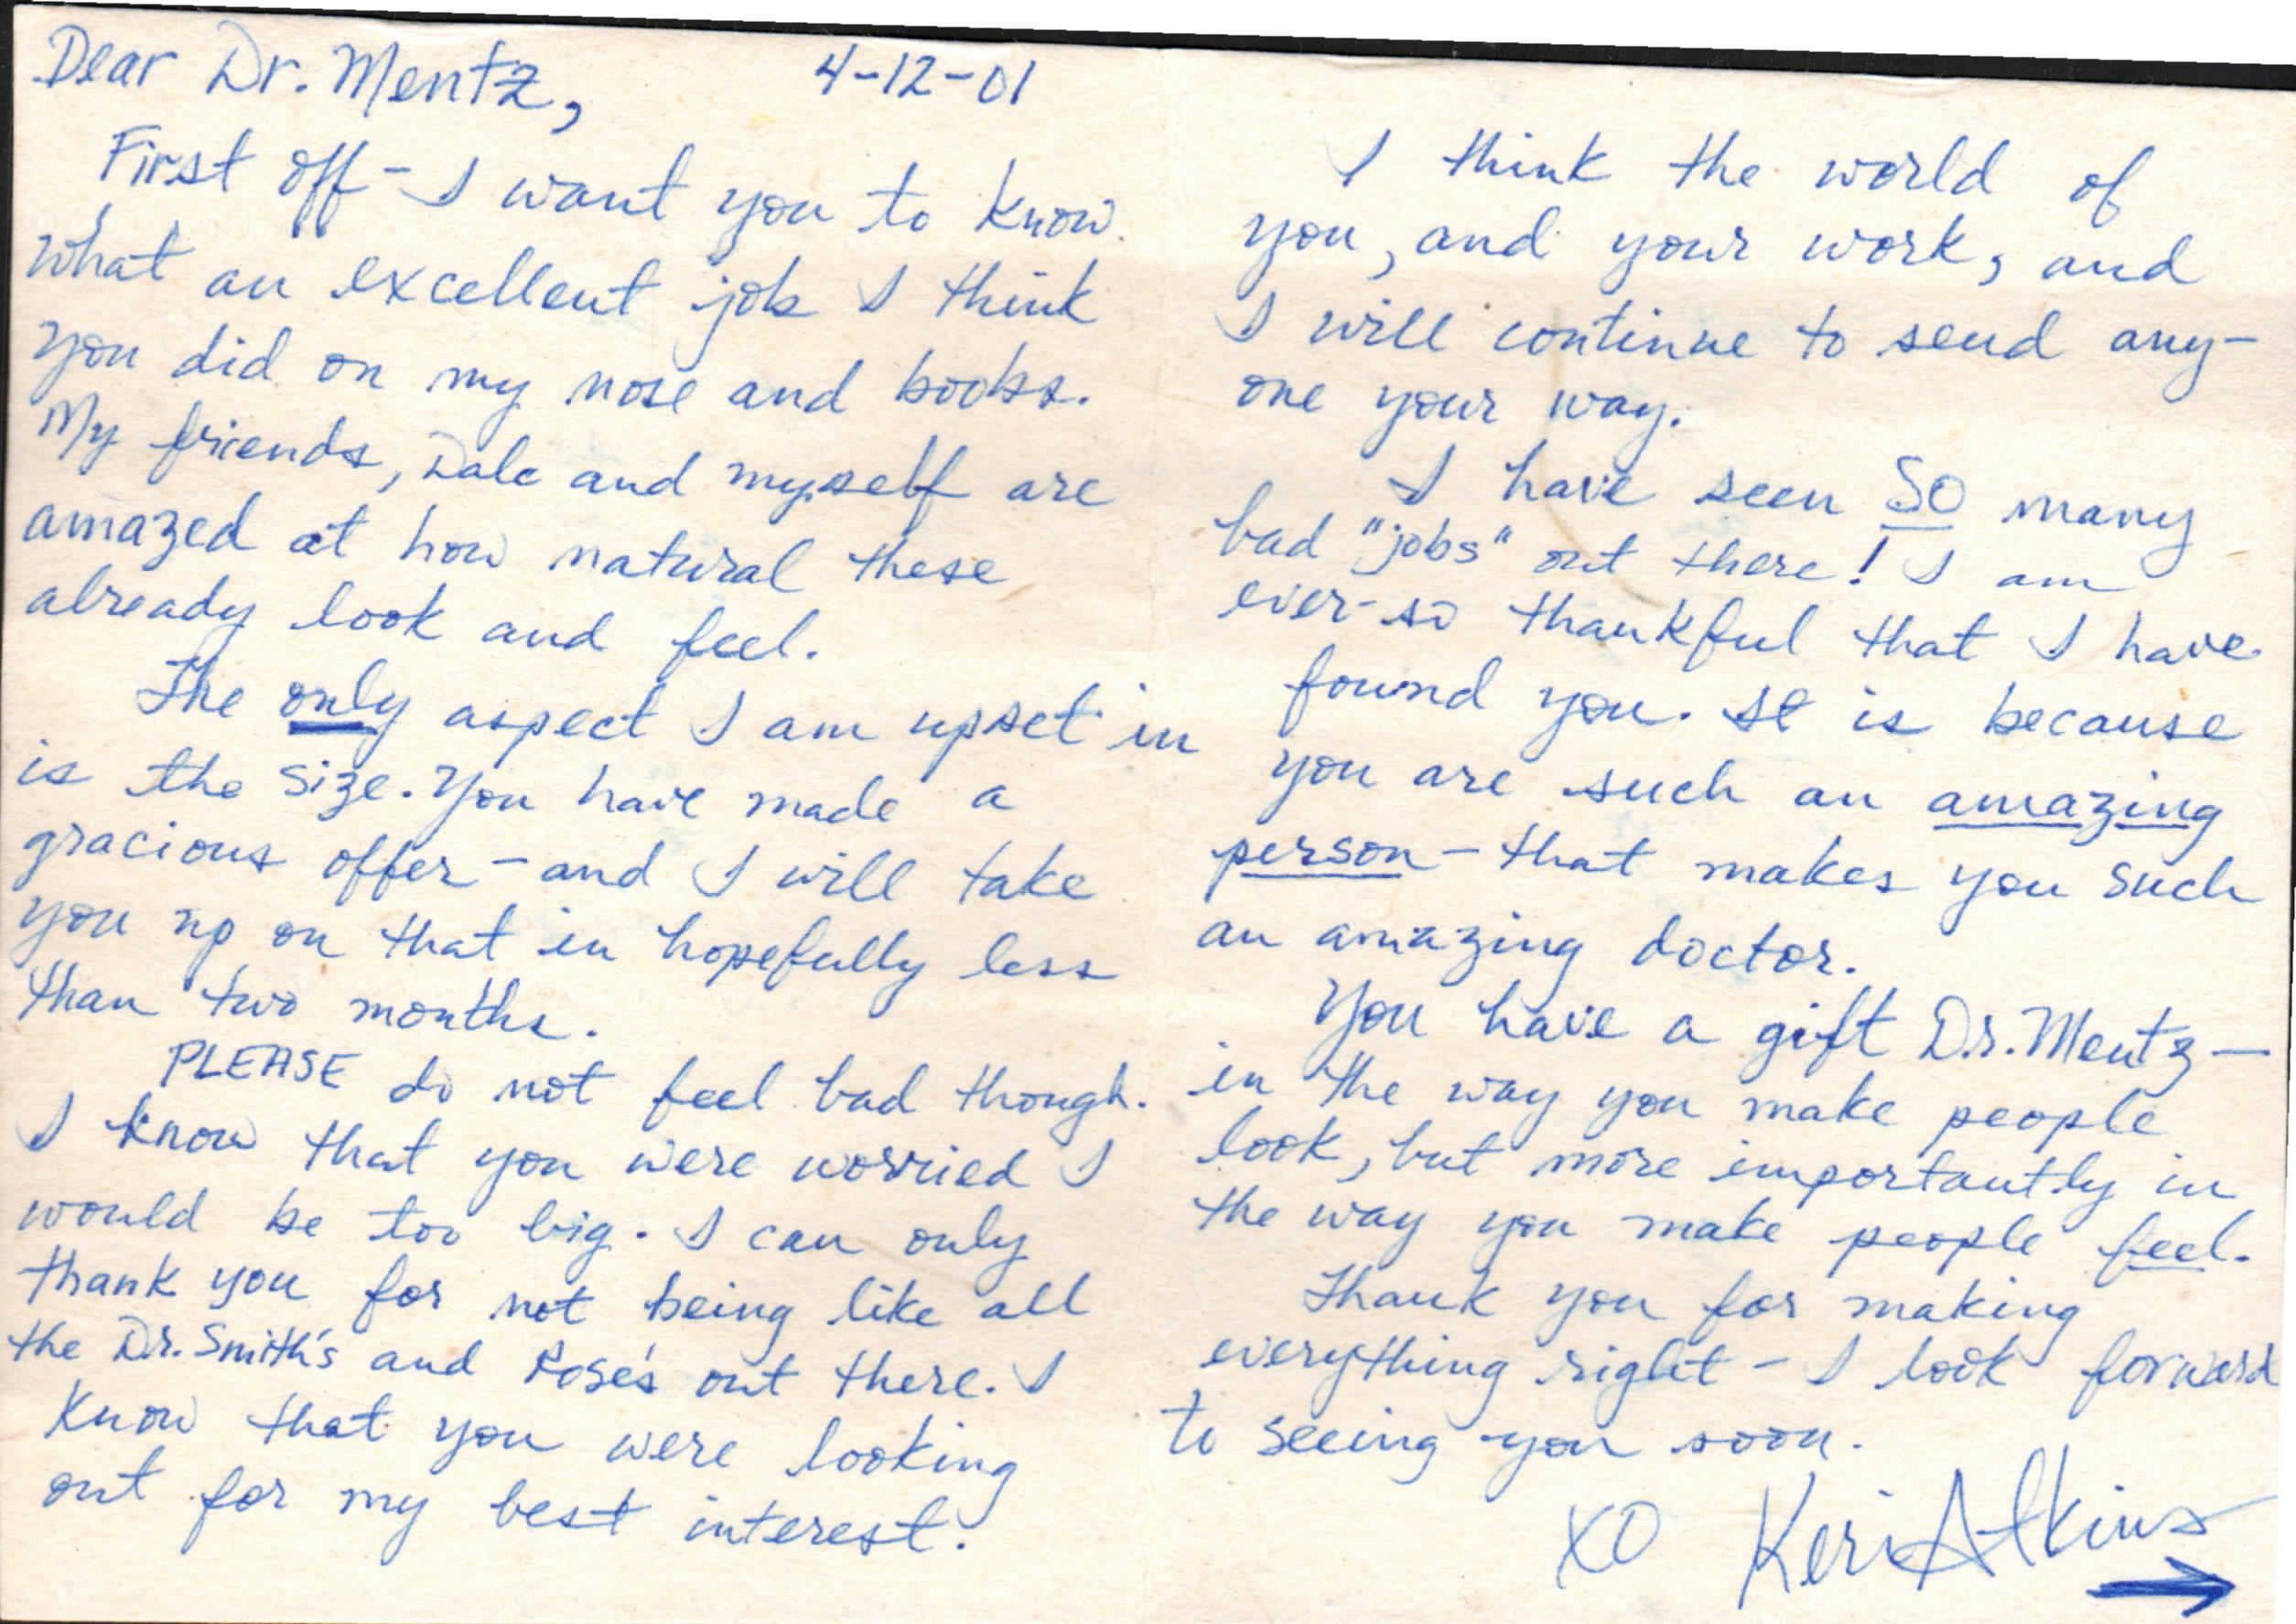 Dear Dr. Mentz, 4-12-01
First off - I want you to know
what an excellent job I think
you did on my nose and boobs.
My friends, Dale and myself are
amazed at how natural these
already look and feel.
The only aspect I am upset in
is the size. You have made a
gracious offer - and I will take
you up on that in hopefully less
than two months.
PLEASE do not feel bad though.
I know that you were worried I
would be too big. I can only
thank you for not being like all
the Dr. Smith's and Rose's out there. I
know that you were looking
out for my best interest.
I think the world of
you, and your work, and
I will continue to send any-
one your way.
I have seen SO many
bad "jobs" out there! I am
ever-so thankful that I have
found you. It is because
you are such an amazing
person - that makes you such
an amazing doctor.
You have a gift Dr. Mentz -
in the way you make people
look, but more importantly in
the way you make people feel.
Thank you for making
everything right - I look forward
to seeing you soon.
XO Keri Atkins
→